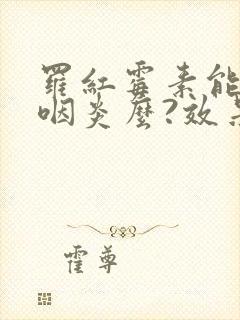 羅紅霉素能
咽炎麼?效
霍尊